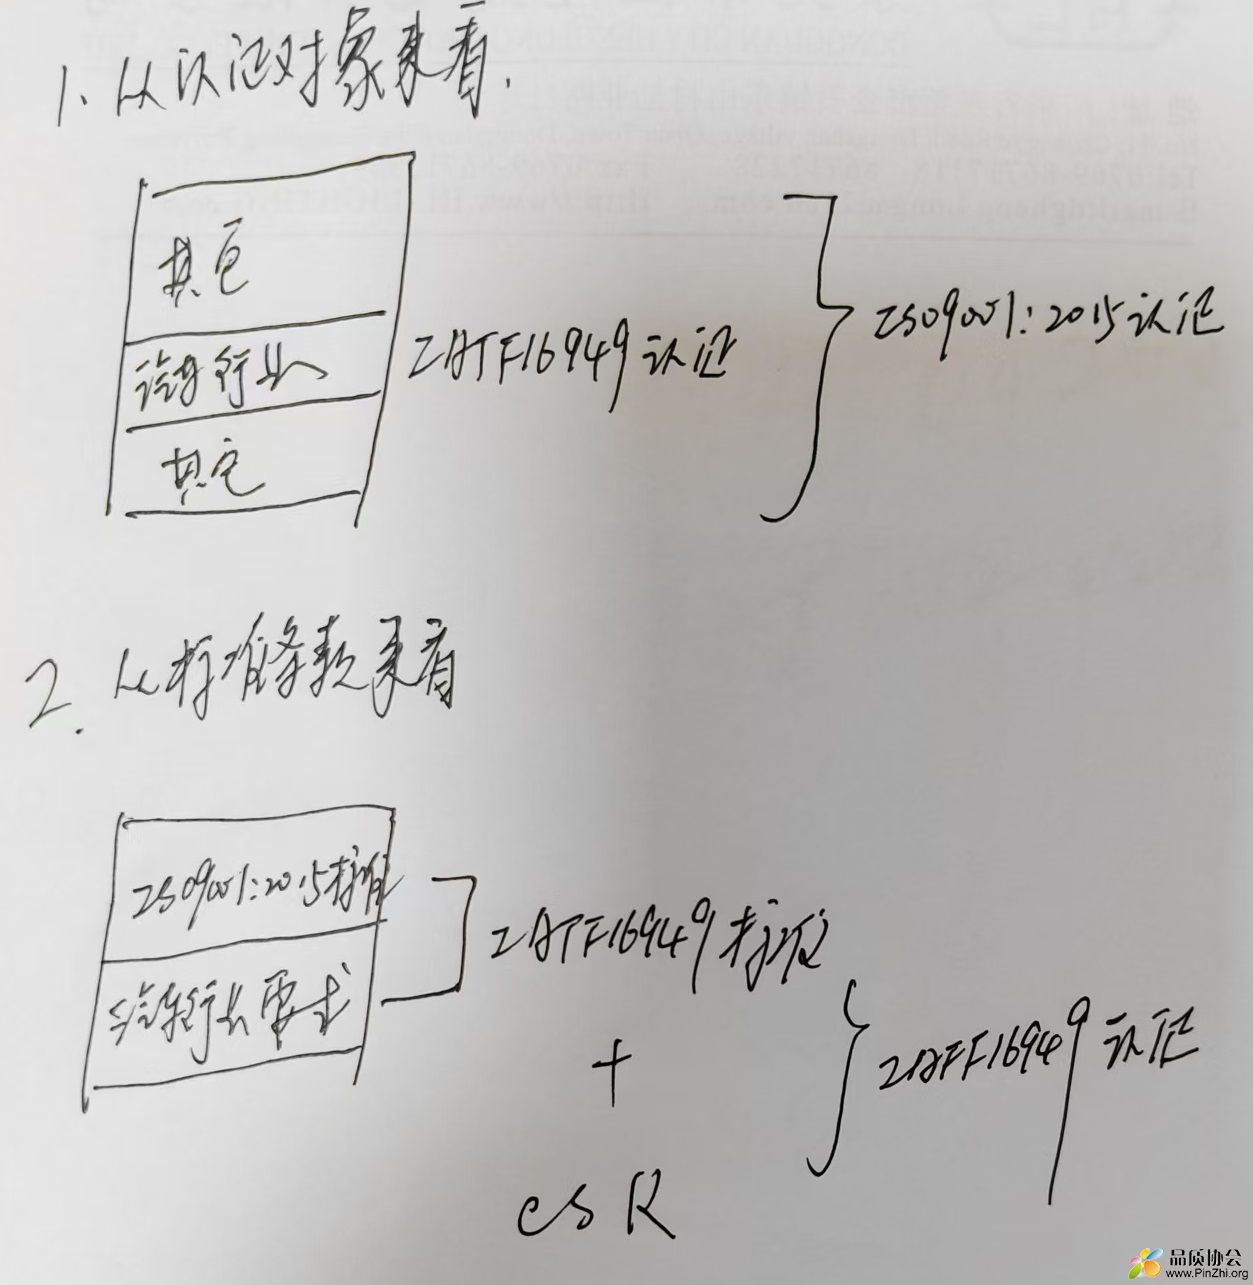 1. 从认证对象来看.
其它
汽车行业
IATF16949认证
ISO9001:2015认证
其它
2. 从标准条款来看
ISO9001:2015标准
汽车行业要求
IATF16949标准
+
CSR
IATF16949认证
品质协会
www.PinZhi.org